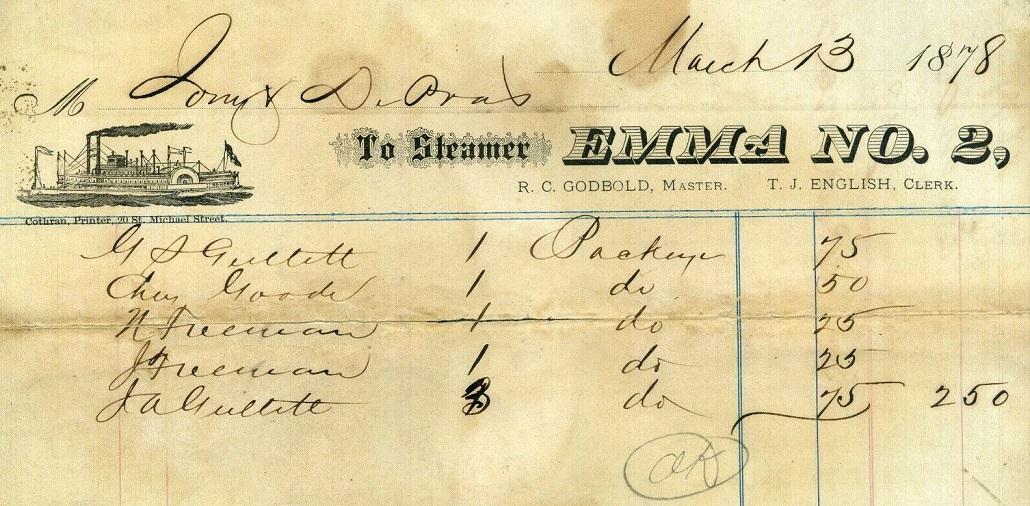 March 13 1878
M
To Steamer EMMA NO. 2,
R. C. GODBOLD, MASTER. T. J. ENGLISH, CLERK.
Cothran, Printer, 20 St. Michael Street.
G S Gullett 1 Package 75
Goode 1 do 50
N Freeman 1 do 25
J Freeman 1 do 25
J A Gullett 3 do 75 250
OK